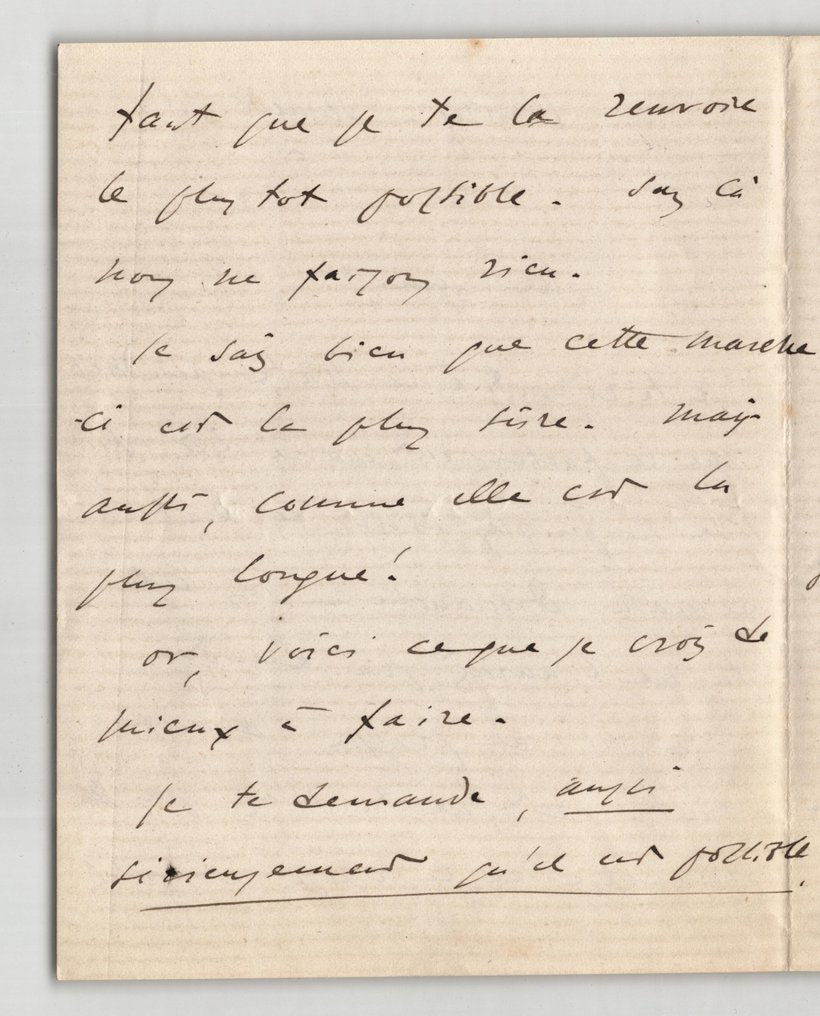 faut que je te la renvoie
le plus tot possible. Sans ça
nous ne faisons rien.
Je sais bien que cette marche
-ci est la plus sûre. Mais
aussi, comme elle est la
plus longue!
or, voici ce que je crois de
mieux à faire.
Je te demande, aussi
sérieusement qu'il est possible,